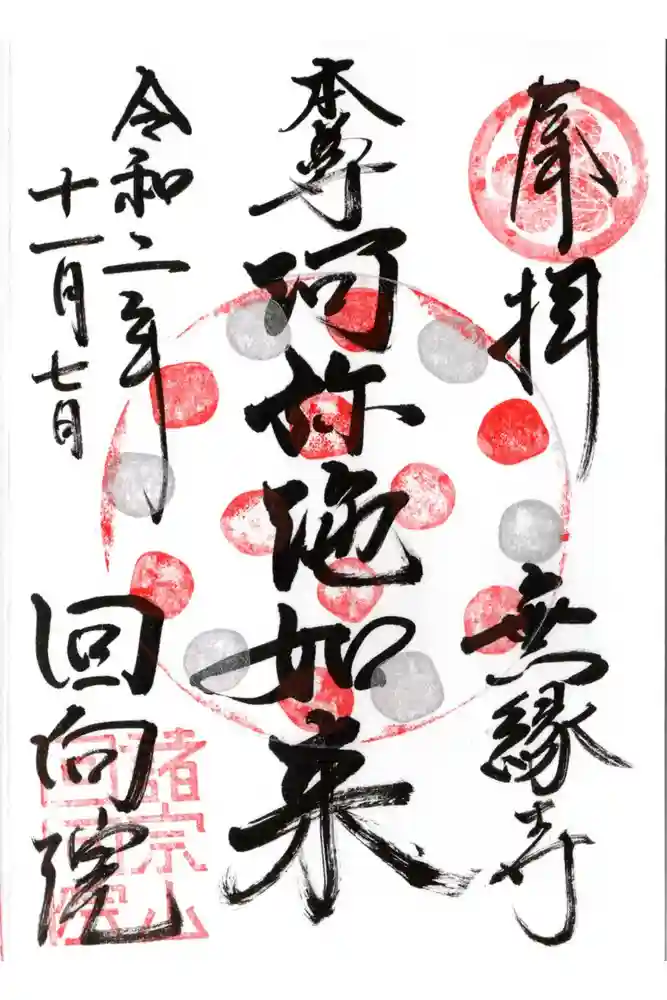 奉拝
無縁寺
本尊
阿弥陀如来
令和二年
十一月七日
回向院
諸宗山
回向院